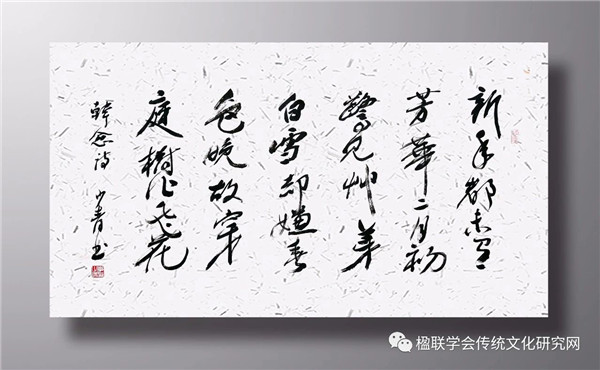 新年都未有
芳華二月初
驚见艸芽
白雪却嫌春
色晚故穿
庭樹作飞花
韓愈诗 少青书
楹联学会传统文化研究网